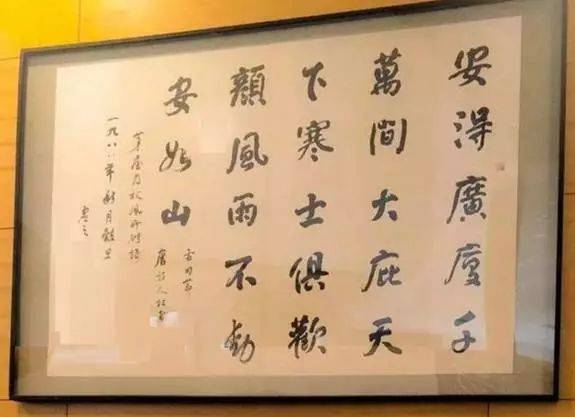 安得廣廈千
萬間大庇天
下寒士俱歡
顏風雨不動
安如山
唐詩人杜甫
茅屋為秋風所破
一九八八年